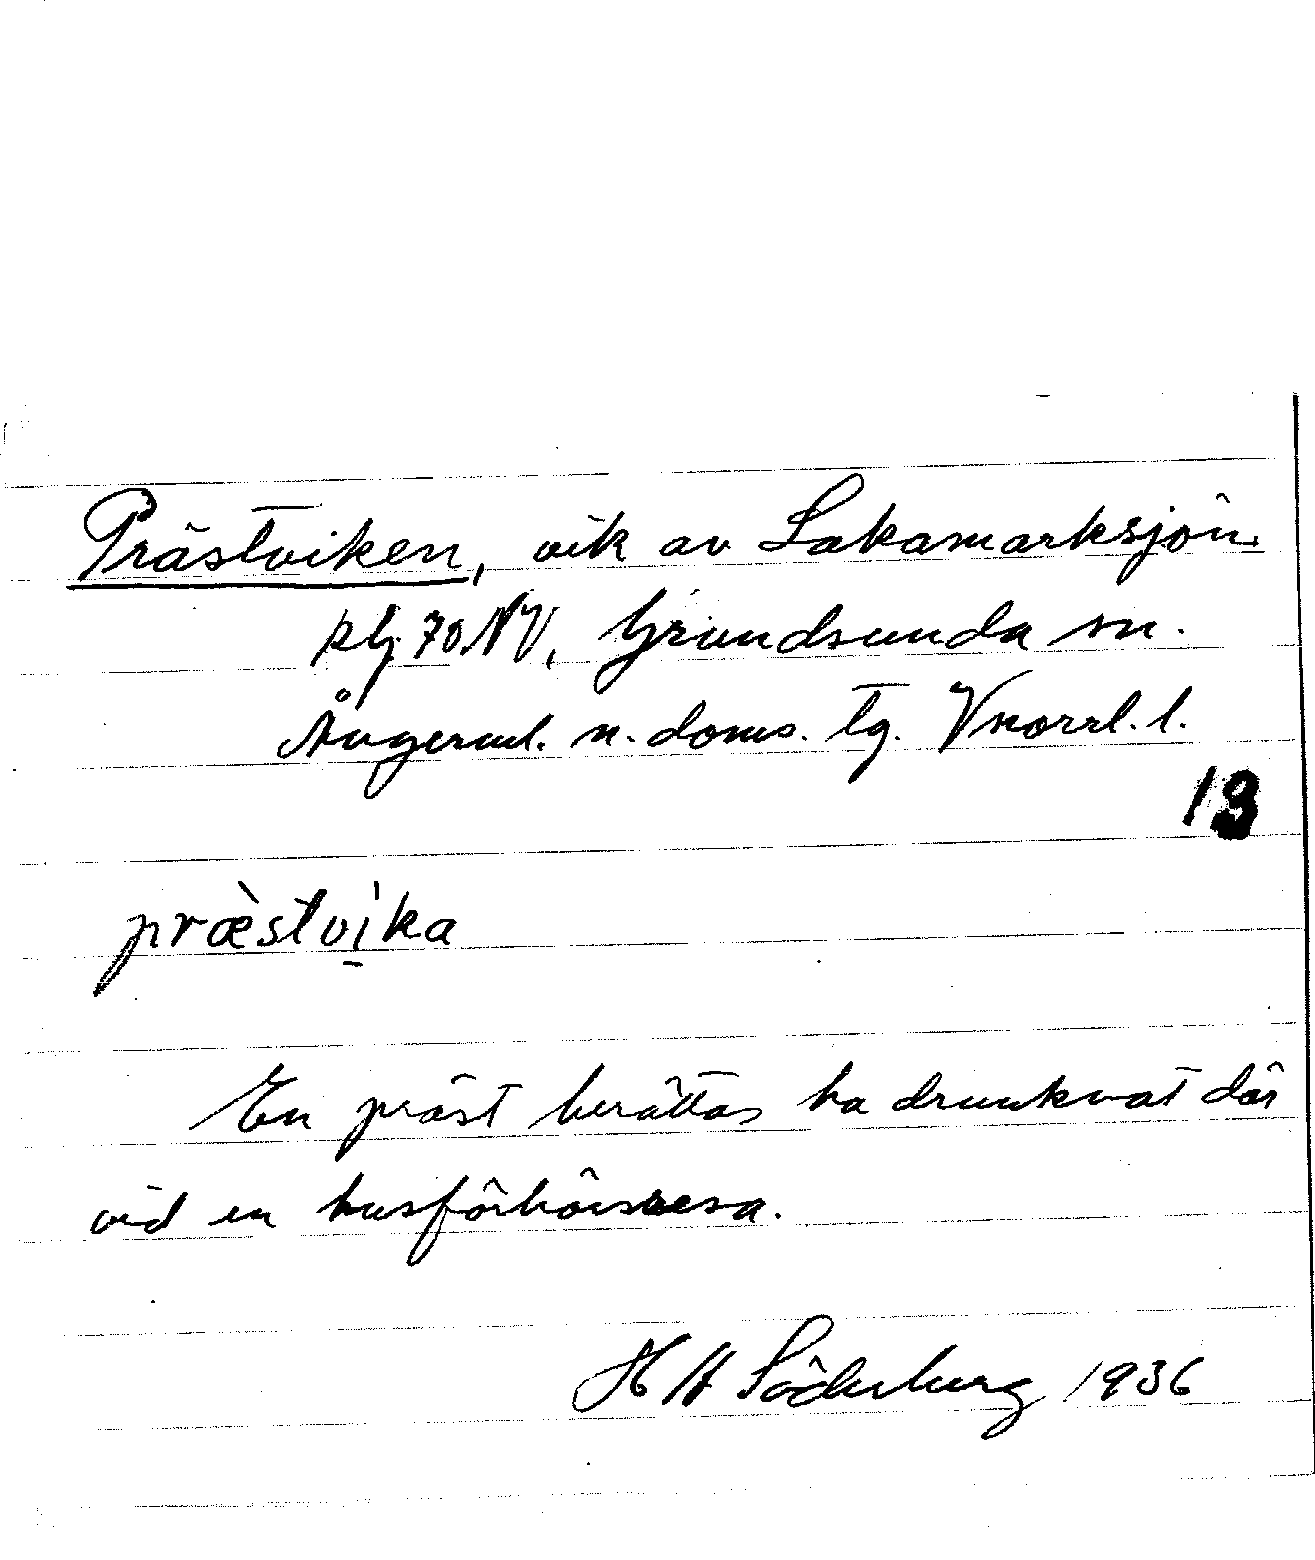 Prästviken, vik av Lakamarksjön.
kbj 70 NV, Grundsunda sn.
Ångerml. n. doms. tg. Vnorrl. l.
13
præ̀stvi̠ka
En präst berättas ha drunknat där
vid en husförhörsresa.
H A Söderberg 1936